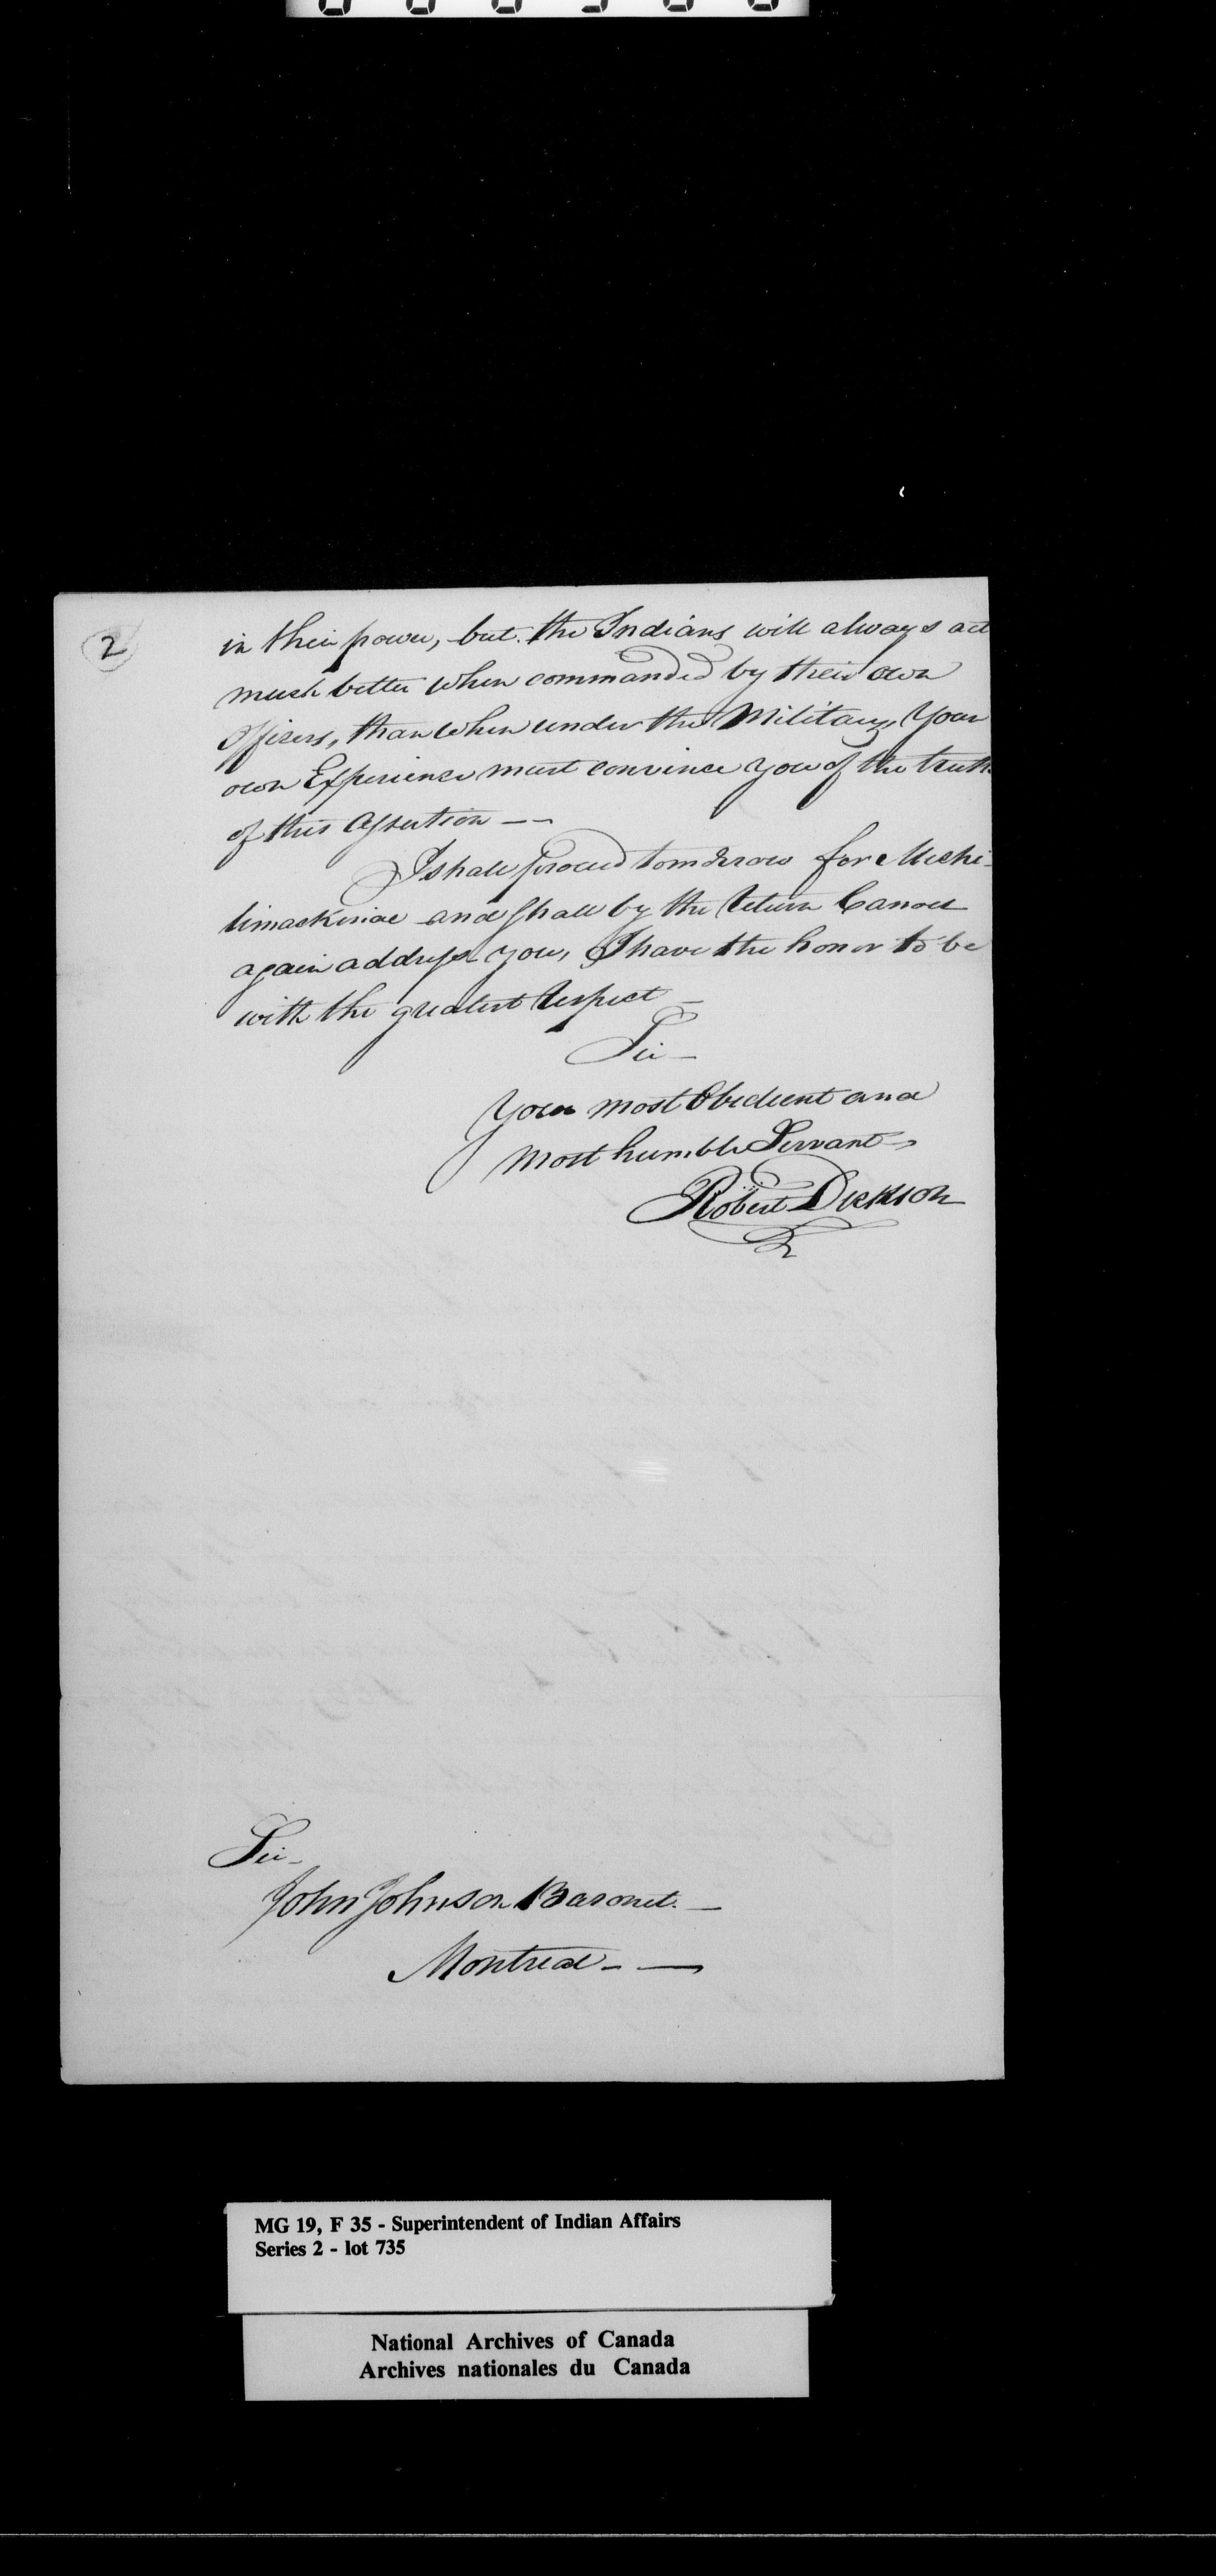 2
in their power, but the Indians will always act
much better when commanded by their own
Officers, than when under the Military, Your
own Experience must convince you of the truth
of this Assertion --
I shall proceed tomorrow for Michi-
limackinac and shall by the return Canoes
again address you, I have the honor to be
with the greatest respect -
Sir -
Your most Obedient and
most humble Servant
Robert Dickson
Sir -
John Johnson Baronet. -
Montreal - -
MG 19, F 35 - Superintendent of Indian Affairs
Series 2 - lot 735
National Archives of Canada
Archives nationales du Canada